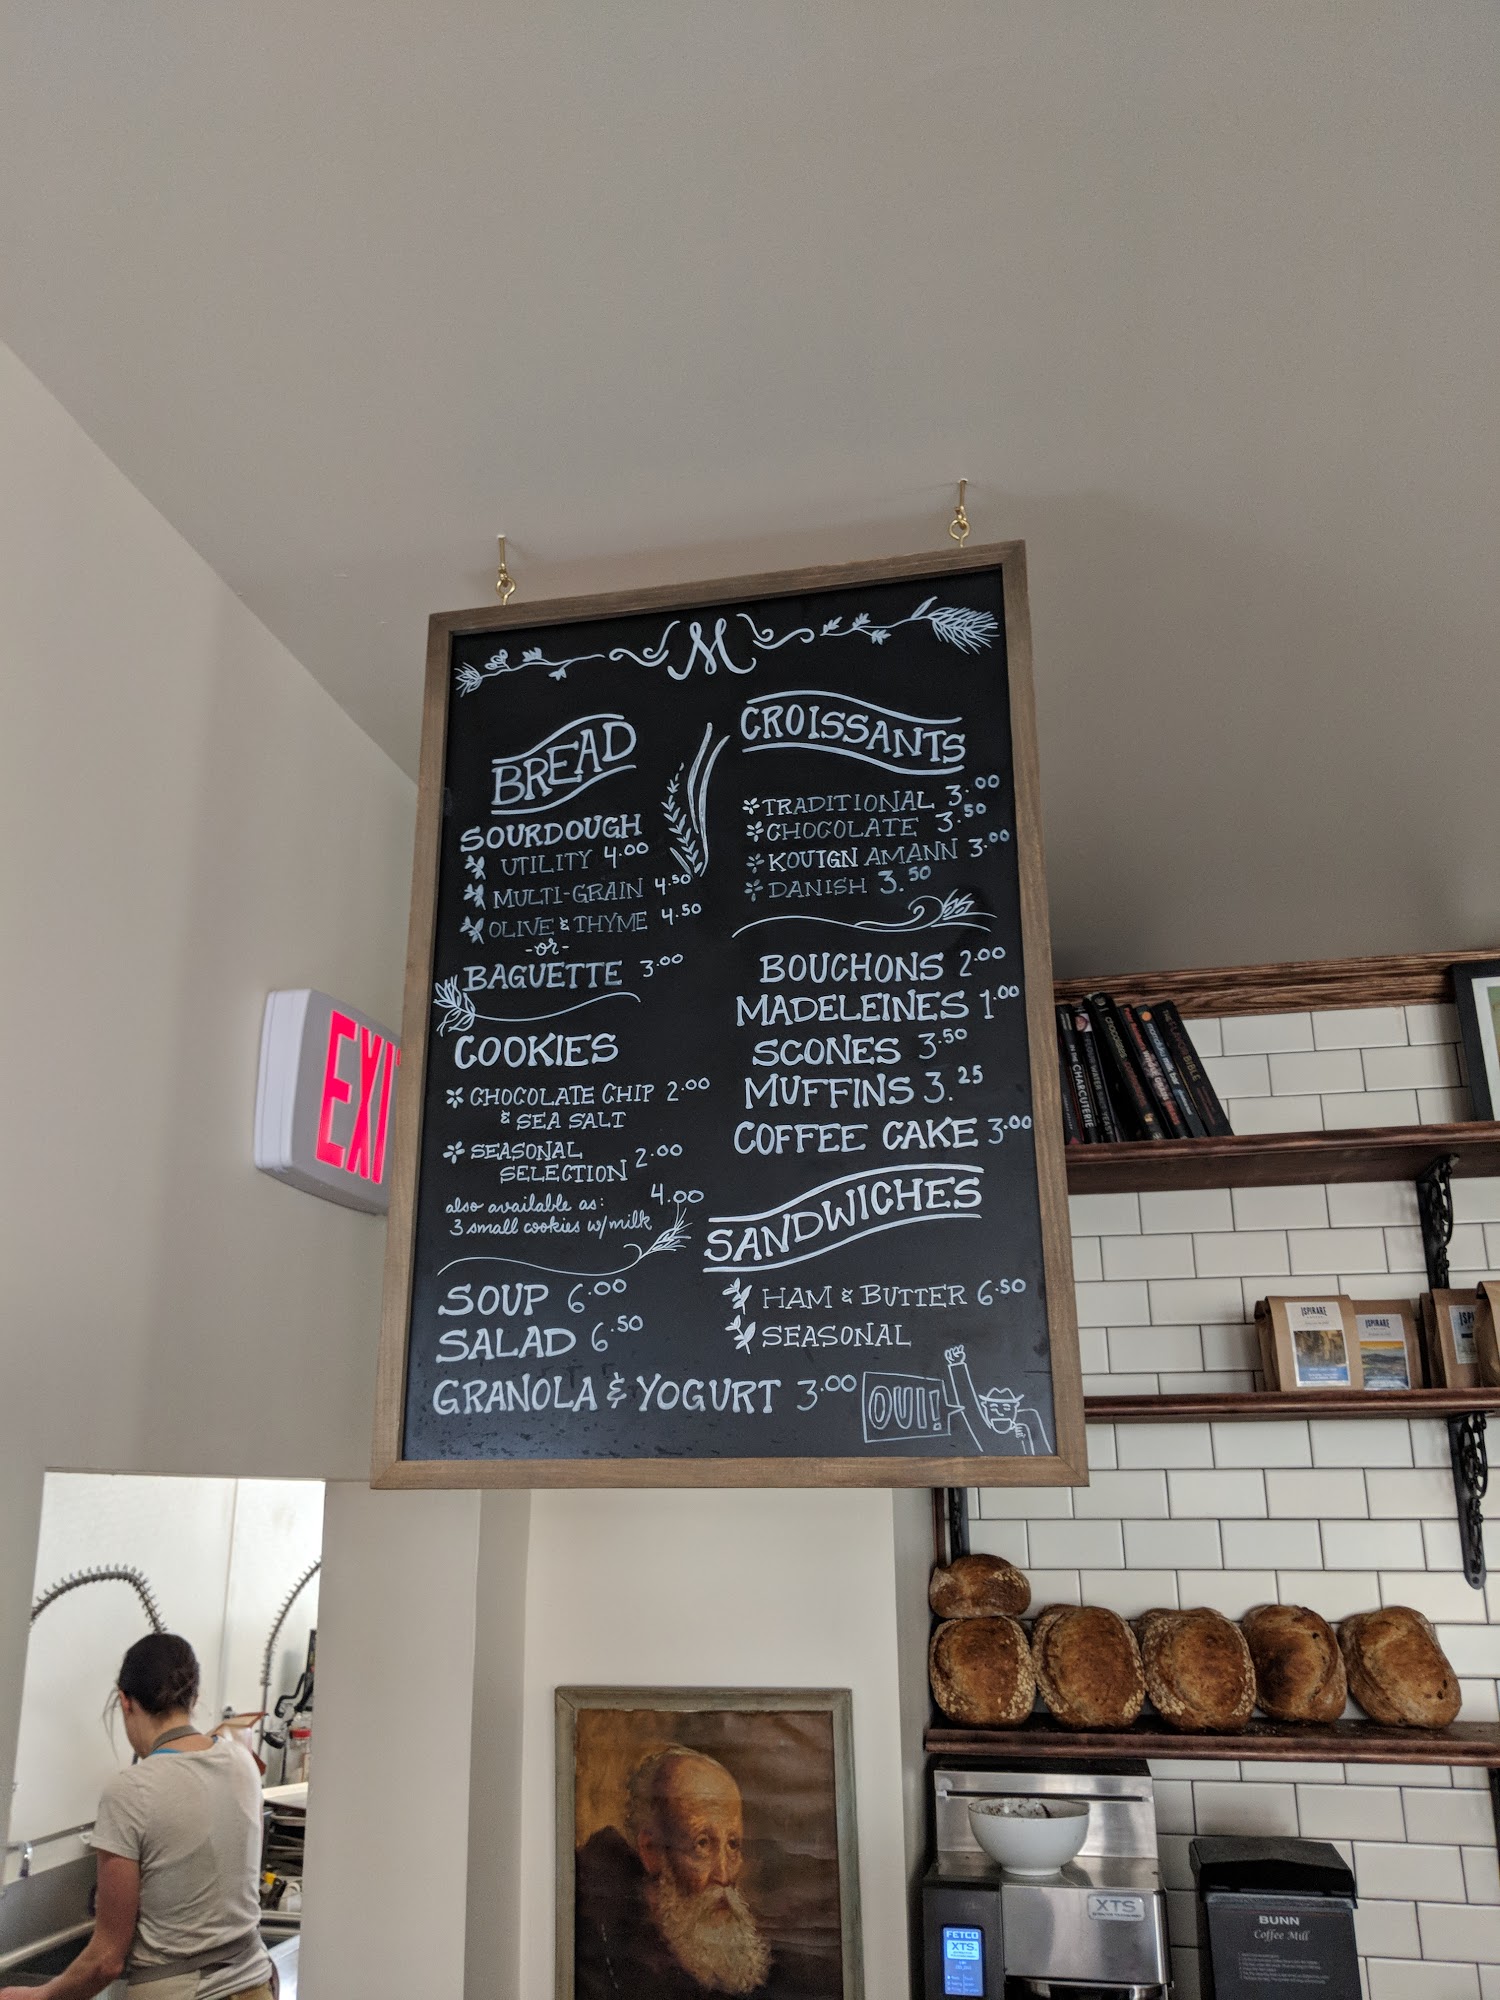 M
BREAD
SOURDOUGH
UTILITY 4.00
MULTI-GRAIN 4.50
OLIVE & THYME 4.50
-or-
BAGUETTE 3.00
COOKIES
CHOCOLATE CHIP 2.00
& SEA SALT
SEASONAL
SELECTION 2.00
also available as: 4.00
3 small cookies w/milk
SOUP 6.00
SALAD 6.50
GRANOLA & YOGURT 3.00
CROISSANTS
TRADITIONAL 3.00
CHOCOLATE 3.50
KOUIGN AMANN 3.00
DANISH 3.50
BOUCHONS 2.00
MADELEINES 1.00
SCONES 3.50
MUFFINS 3.25
COFFEE CAKE 3.00
SANDWICHES
HAM & BUTTER 6.50
SEASONAL
OUI!
EXI
CHARCUTERIE
BIBLE
ISPIRARE
XTS
FETCO
XTS
BUNN
Coffee Mill